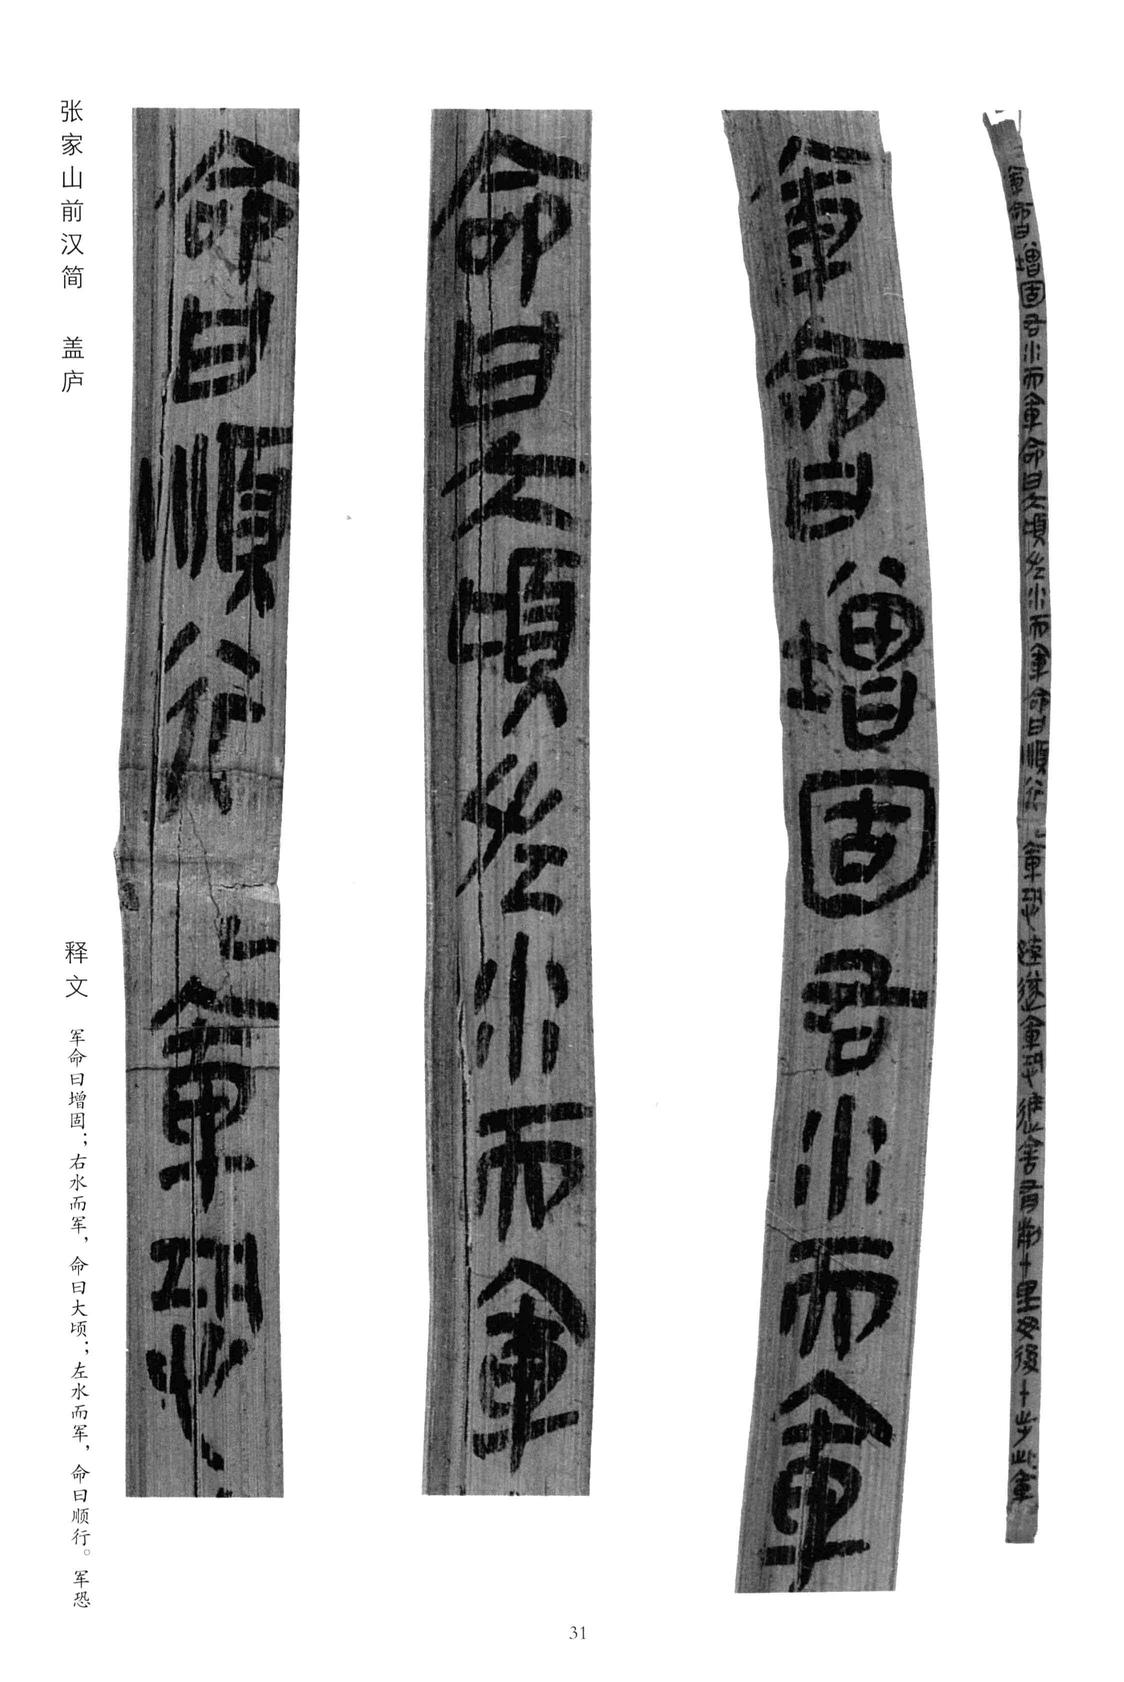 軍命曰增固右水而軍命曰大頃左水而軍命曰順行└軍恐疏遂軍恐進舍有前十里毋後十步此軍
軍命曰增固右水而軍
命曰大頃左水而軍
命曰順行└軍恐
张家山前汉简 盖庐
释文 军命曰增固；右水而军，命曰大顷；左水而军，命曰顺行。军恐
31